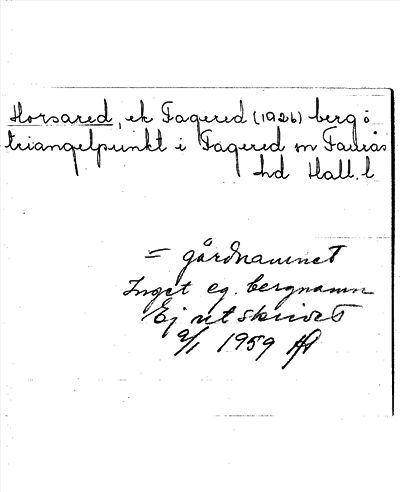 Horsared, ek Fagered (1926) berg o
triangelpunkt i Fagered sn Faurås
hd Hall. l
= gårdnamnet
Inget eg. bergnamn
Ej utskrivet
9/1 1959